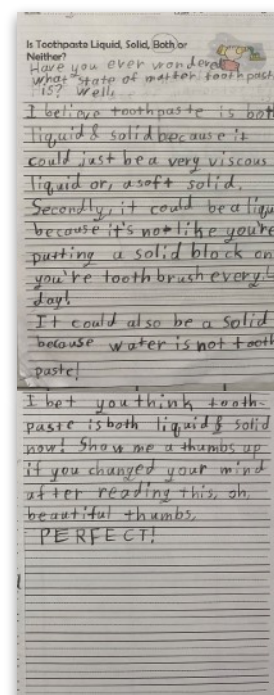 Is Toothpaste Liquid, Solid, Both or
Neither?
Have you ever wondered
what state of matter toothpast
is? Well,
I believe toothpaste is bot
liquid & solid because it
could just be a very viscous
liquid or, a soft solid.
Secondly, it could be a liqu
because it's not like you're
putting a solid block on
you're toothbrush every
day!
It could also be a solid
because water is not tooth
paste!
I bet you think tooth-
paste is both liquid & solid
now! Show me a thumbs up
if you changed your mind
after reading this, oh,
beautiful thumbs,
PERFECT!